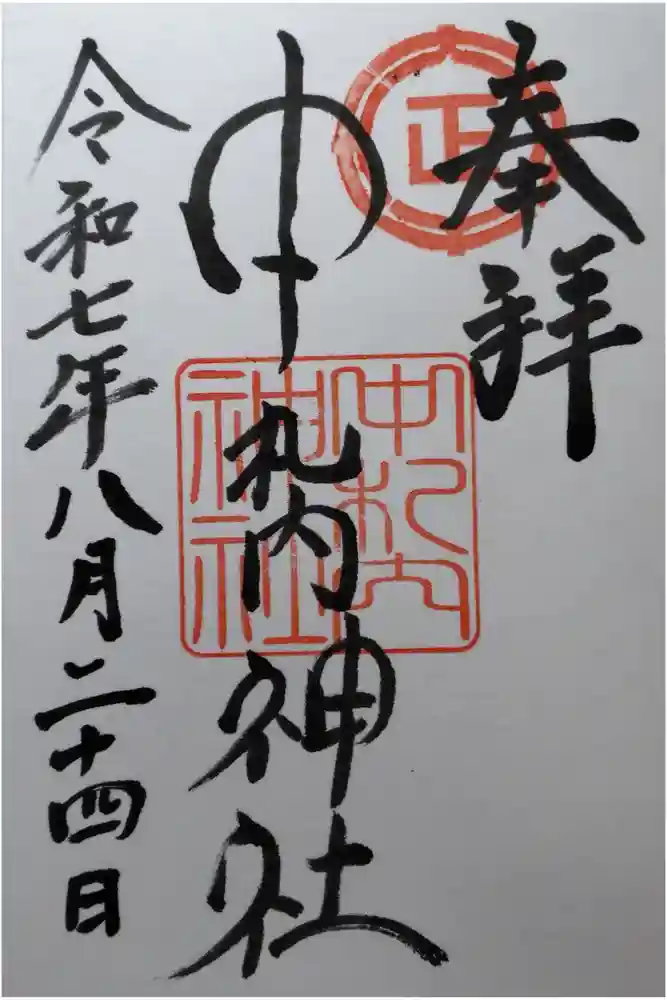 奉拝
正
中札内神社
中札内
神社
令和七年八月二十四日